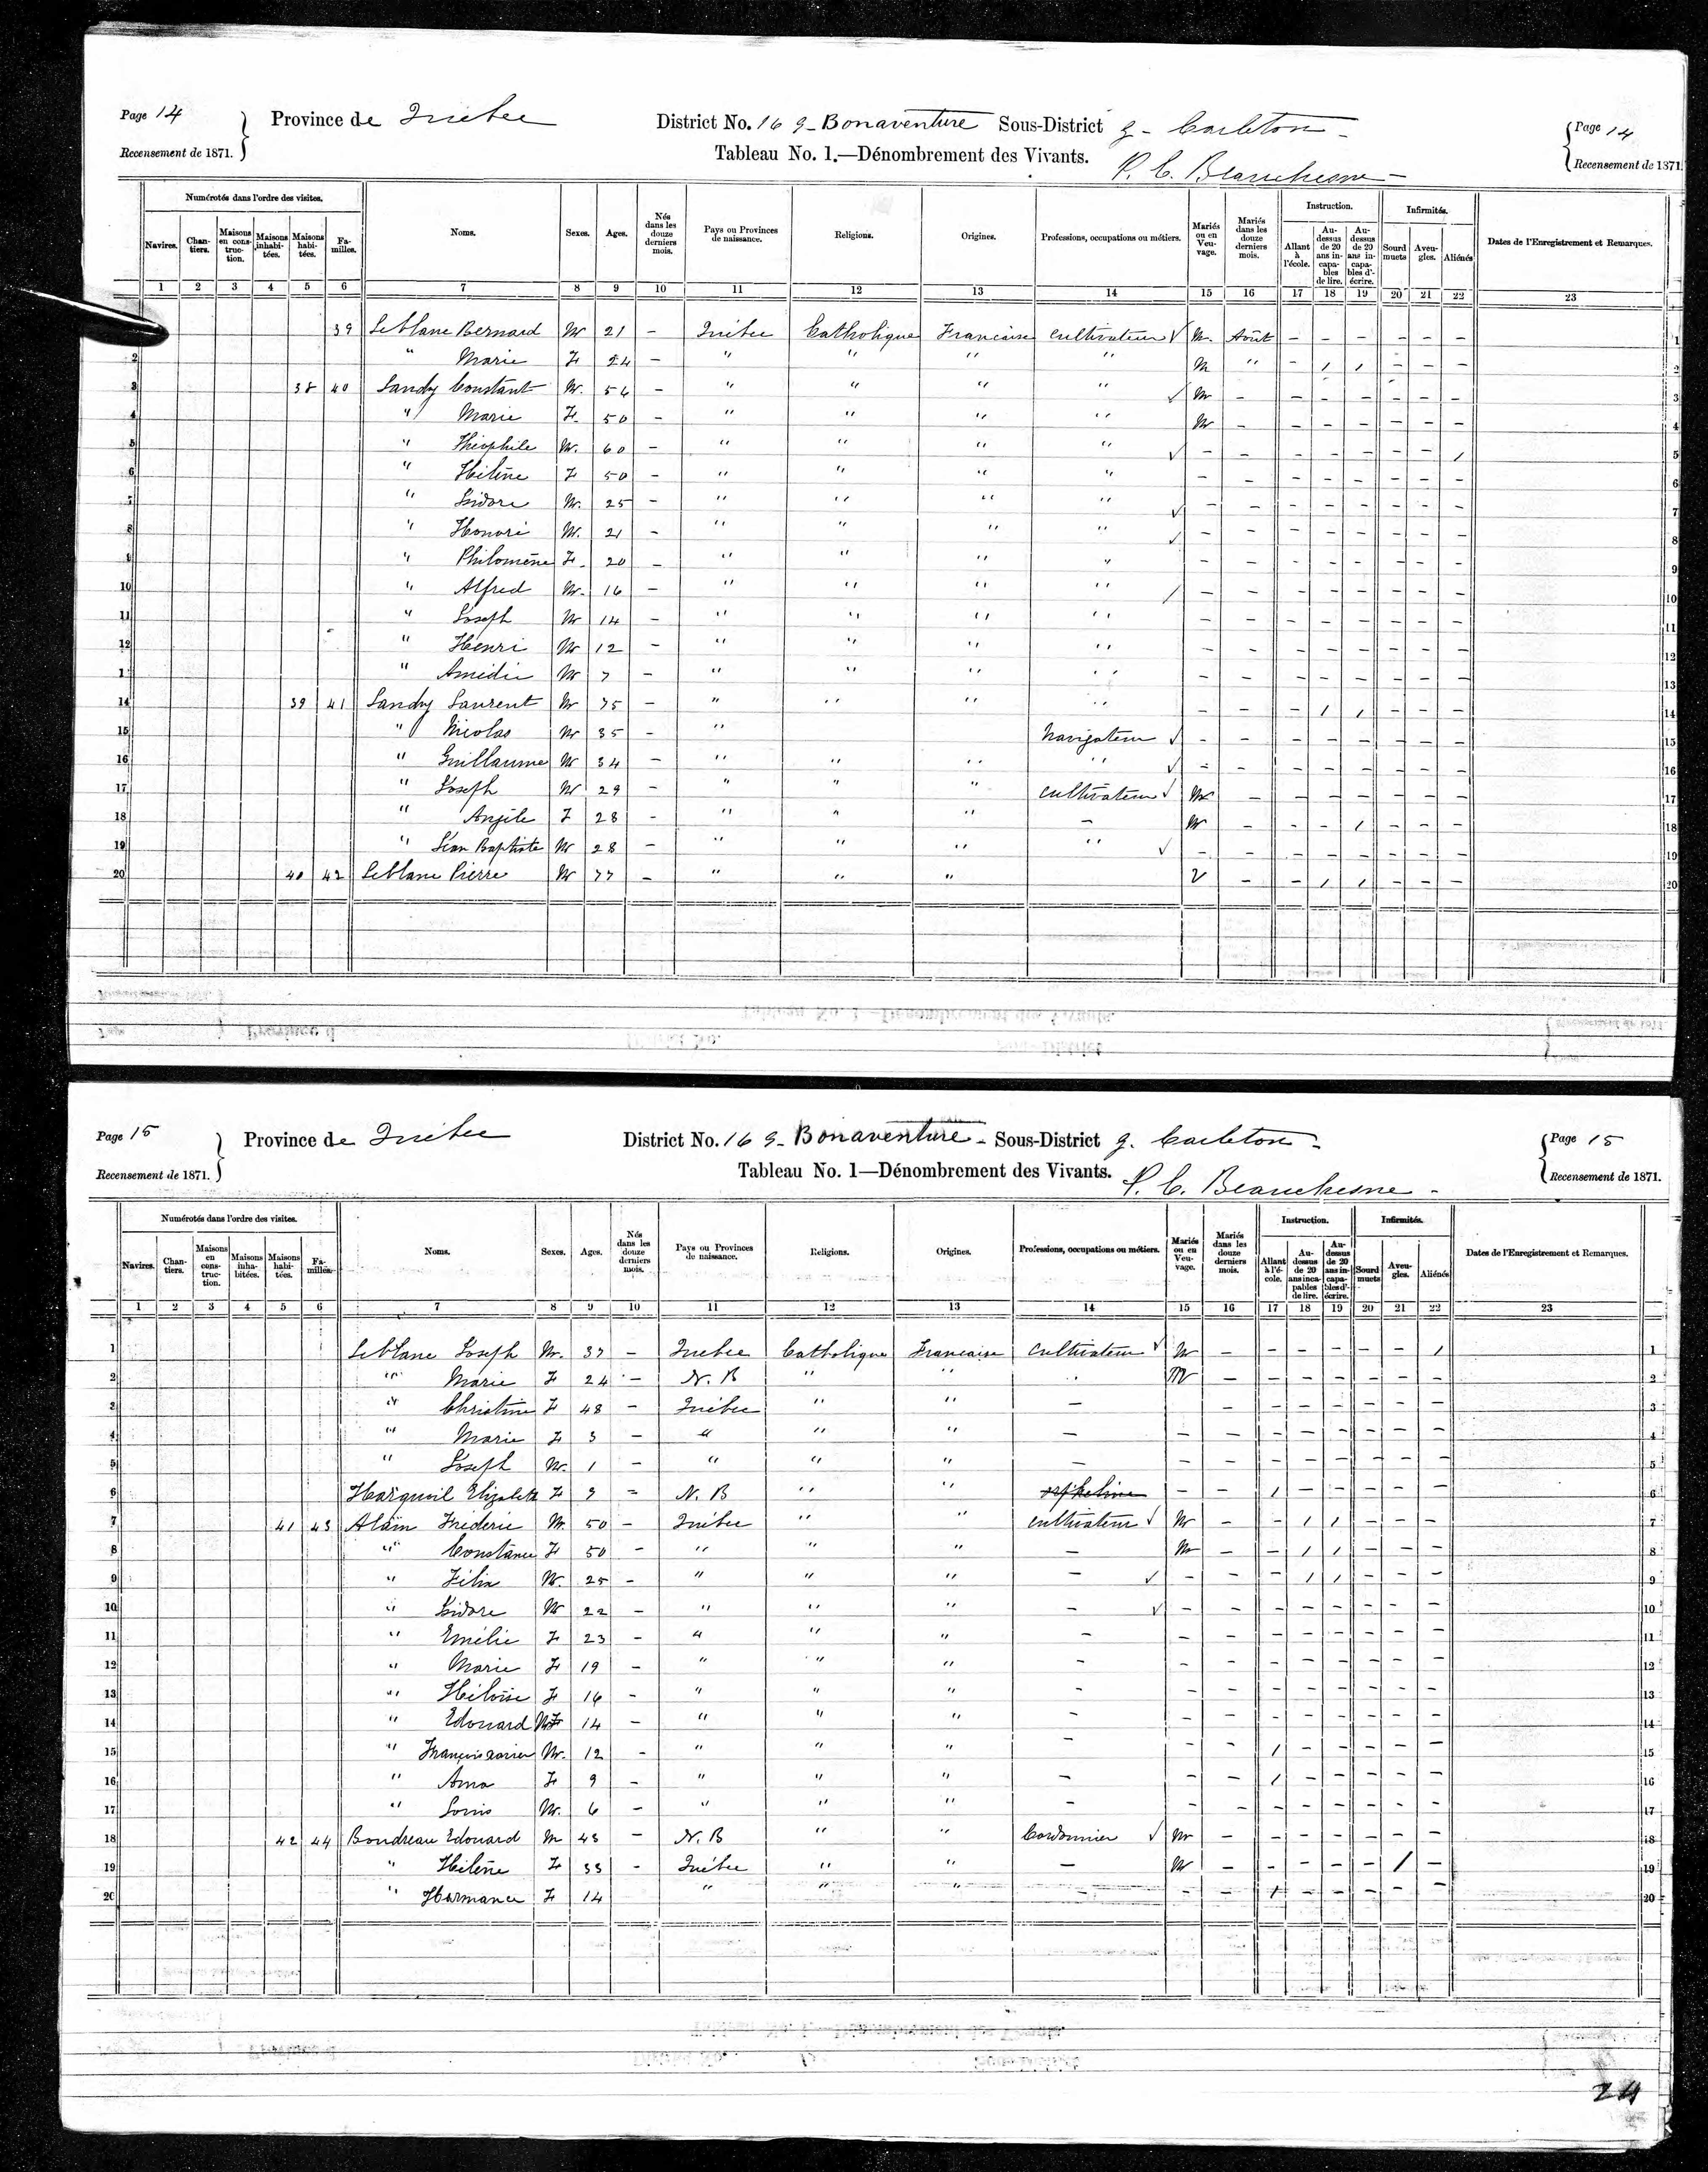 Page 14 Province de Québec District No. 169 - Bonaventure Sous-District g - Carleton - Page 14
Recensement de 1871. Tableau No. 1.—Dénombrement des Vivants. P. C. Beauchesne - Recensement de 1871
Numérotés dans l'ordre des visites. Noms. Sexes. Ages. Nés dans les douze derniers mois. Pays ou Provinces de naissance. Religions. Origines. Professions, occupations ou métiers. Mariés ou en Veuvage. Mariés dans les douze derniers mois. Instruction. Infirmités. Dates de l'Enregistrement et Remarques.
Navires. Chantiers. Maisons en construction. Maisons inhabitées. Maisons habitées. Familles. Allant à l'école. Au-dessus de 20 ans incapables de lire. Au-dessus de 20 ans incapables d'écrire. Sourd muets Aveugles. Aliénés
1 2 3 4 5 6 7 8 9 10 11 12 13 14 15 16 17 18 19 20 21 22 23
39 Leblanc Bernard M 21 - Québec Catholique Francaise cultivateur ✓ M. Août - - - - - - 1
2 " Marie F 24 - " " " " M " - / / - - - 2
3 38 40 Landry Constant M. 54 - " " " " ✓ M - - - - - - - 3
4 " Marie F. 50 - " " " " M - - - - - - - 4
5 " Théophile M. 60 - " " " " ✓ - - - - - - - / 5
6 " Hélène F 50 - " " " " - - - - - - - - 6
7 " Isidore M. 25 - " " " " ✓ - - - - - - - - 7
8 " Honoré M. 21 - " " " " ✓ - - - - - - - - 8
9 " Philomène F. 20 - " " " " - - - - - - - - 9
10 " Alfred M. 16 - " " " " / - - - - - - - - 10
11 " Joseph M 14 - " " " " - - - - - - - - 11
12 " Henri M 12 - " " " " - - - - - - - - 12
1 " Amédée M 7 - " " " " - - - - - - - - 13
14 39 41 Landry Laurent M 75 - " " " " - - - / / - - - 14
15 " Nicolas M 35 - " Navigateur ✓ - - - - - - - - 15
16 " Guillaume M 34 - " " " " ✓ - - - - - - - - 16
17 " Joseph M 29 - " " " cultivateur ✓ M - - - - - - - 17
18 " Angèle F 28 - " " " - M - - - / - - - 18
19 " Jean Baptiste M 28 - " " " " ✓ - - - - - - - - 19
20 40 42 Leblanc Pierre M 77 - " " " V - - / / - - - 20
Page 15 Province de Québec District No. 169 - Bonaventure - Sous-District g. Carleton - Page 15
Recensement de 1871. Tableau No. 1—Dénombrement des Vivants. P. C. Beauchesne - Recensement de 1871.
Numérotés dans l'ordre des visites. Noms. Sexes. Ages. Nés dans les douze derniers mois. Pays ou Provinces de naissance. Religions. Origines. Professions, occupations ou métiers. Mariés ou en Veuvage. Mariés dans les douze derniers mois. Instruction. Infirmités. Dates de l'Enregistrement et Remarques.
Navires. Chantiers. Maisons en construction. Maisons inhabitées. Maisons habitées. Familles. Allant à l'école. Au-dessus de 20 ans incapables de lire. Au-dessus de 20 ans incapables d'écrire. Sourd muets Aveugles. Aliénés
1 2 3 4 5 6 7 8 9 10 11 12 13 14 15 16 17 18 19 20 21 22 23
1 Leblanc Joseph M. 37 - Quebec Catholique Francaise Cultivateur ✓ M - - - - - - / 1
2 " Marie F 24 - N. B " " " M - - - - - - - 2
3 " Christine F 48 - Québec " " - - - - - - - - 3
4 " Marie F 3 - " " " - - - - - - - - - 4
5 " Joseph M. 1 - " " " - - - - - - - - - 5
6 Harquoil Elizabeth F 9 - N. B " " orpheline - - / - - - - - 6
7 41 43 Alain Fréderic M. 50 - Québec " " cultivateur ✓ M - - / / - - - 7
8 " Constance F 50 - " " " - M - - / / - - - 8
9 " Félix M. 25 - " " " - ✓ - - - / / - - - 9
10 " Isidore M 22 - " " " - ✓ - - - - - - - - 10
11 " Emélie F 23 - " " " - - - - - - - - - 11
12 " Marie F 19 - " " " - - - - - - - - - 12
13 " Héloïse F 16 - " " " - - - - - - - - - 13
14 " Edouard M 14 - " " " - - - - - - - - - 14
15 " François Xavier M. 12 - " " " - - - / - - - - - 15
16 " Anna F 9 - " " " - - - / - - - - - 16
17 " Louis M. 6 - " " " - - - - - - - - - 17
18 42 44 Boudreau Edouard M 43 - N. B " " Cordonnier ✓ M - - - - - - - 18
19 " Hélène F 33 - Québec " " - M - - - - - / - 19
20 " Harmance F 14 " " " - - - / - - - - - 20
24